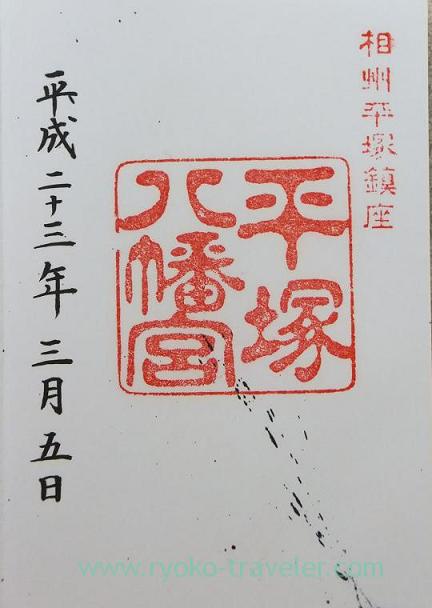 相州平塚鎮座
平塚
八幡宮
平成二十三年三月五日
www.ryoko-traveler.com